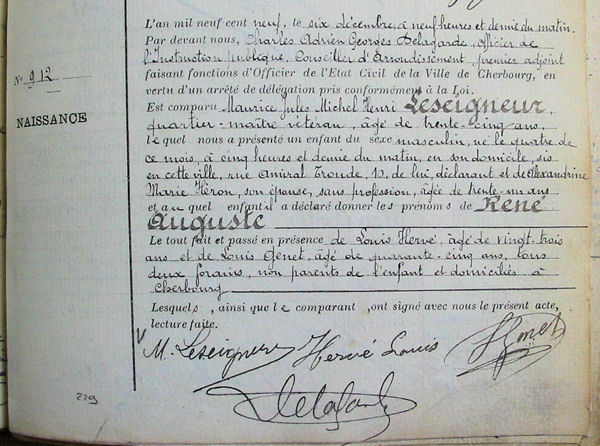 L'an mil neuf cent neuf, le six décembre à neuf heures et demie du matin.
Par devant nous, Charles Adrien Georges Delagarde, Officier de
l'Instruction publique, Conseiller d'Arrondissement premier adjoint
faisant fonctions d'Officier de l'Etat Civil de la Ville de Cherbourg, en
vertu d'un arrêté de délégation pris conformément à la Loi.
N° 912
NAISSANCE
Est comparu Maurice Jules Michel Henri Leseigneur,
quartier-maître vétéran, âgé de trente-cinq ans,
lequel nous a présenté un enfant du sexe masculin, né le quatre de
ce mois, à cinq heures et demie du matin, en son domicile, sis
en cette ville, rue Amiral Troude, 10, de lui, déclarant et de Alexandrine
Marie Héron, son épouse, sans profession, âgée de trente-un ans
et auquel enfant il a déclaré donner les prénoms de René
Auguste
Le tout fait et passé en présence de Louis Hervé, âgé de vingt-trois
ans et de Louis Genet, âgé de quarante-cinq ans, tous
deux forains, non parents de l'enfant et domiciliés à
Cherbourg
Lesquels, ainsi que le comparant, ont signé avec nous le présent acte,
lecture faite.
M. Leseigneur Hervé Louis LGenet
Delagarde
229